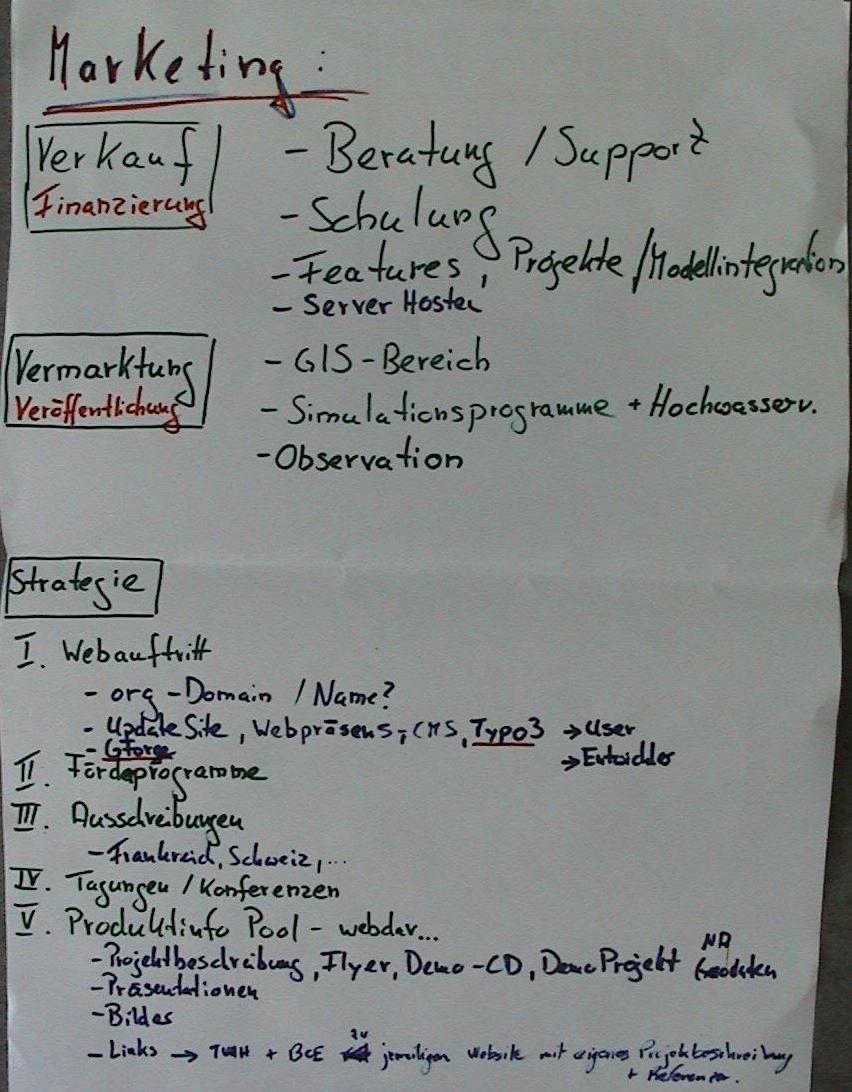 Marketing :
Verkauf
Finanzierung
- Beratung / Support
- Schulung
- Features, Projekte / Modellintegration
- Server Hosten
Vermarktung
Veröffentlichung
- GIS-Bereich
- Simulationsprogramme + Hochwasserv.
- Observation
Strategie
I. Webauftritt
- org-Domain / Name?
- Update Site, Webpräsens, CMS, Typo3 → User
- Gforge → Entwickler
II. Förderprogramme
III. Ausschreibungen
- Frankreich, Schweiz, ...
IV. Tagungen / Konferenzen
V. Produktinfo Pool - webdav...
- Projektbeschreibung, Flyer, Demo-CD, Demo Projekt Geodaten
- Präsentationen
- Bilder
- Links → TUHH + BCE zu jeweiligen Website mit eigener Projektbeschreibung
+ Referenzen.